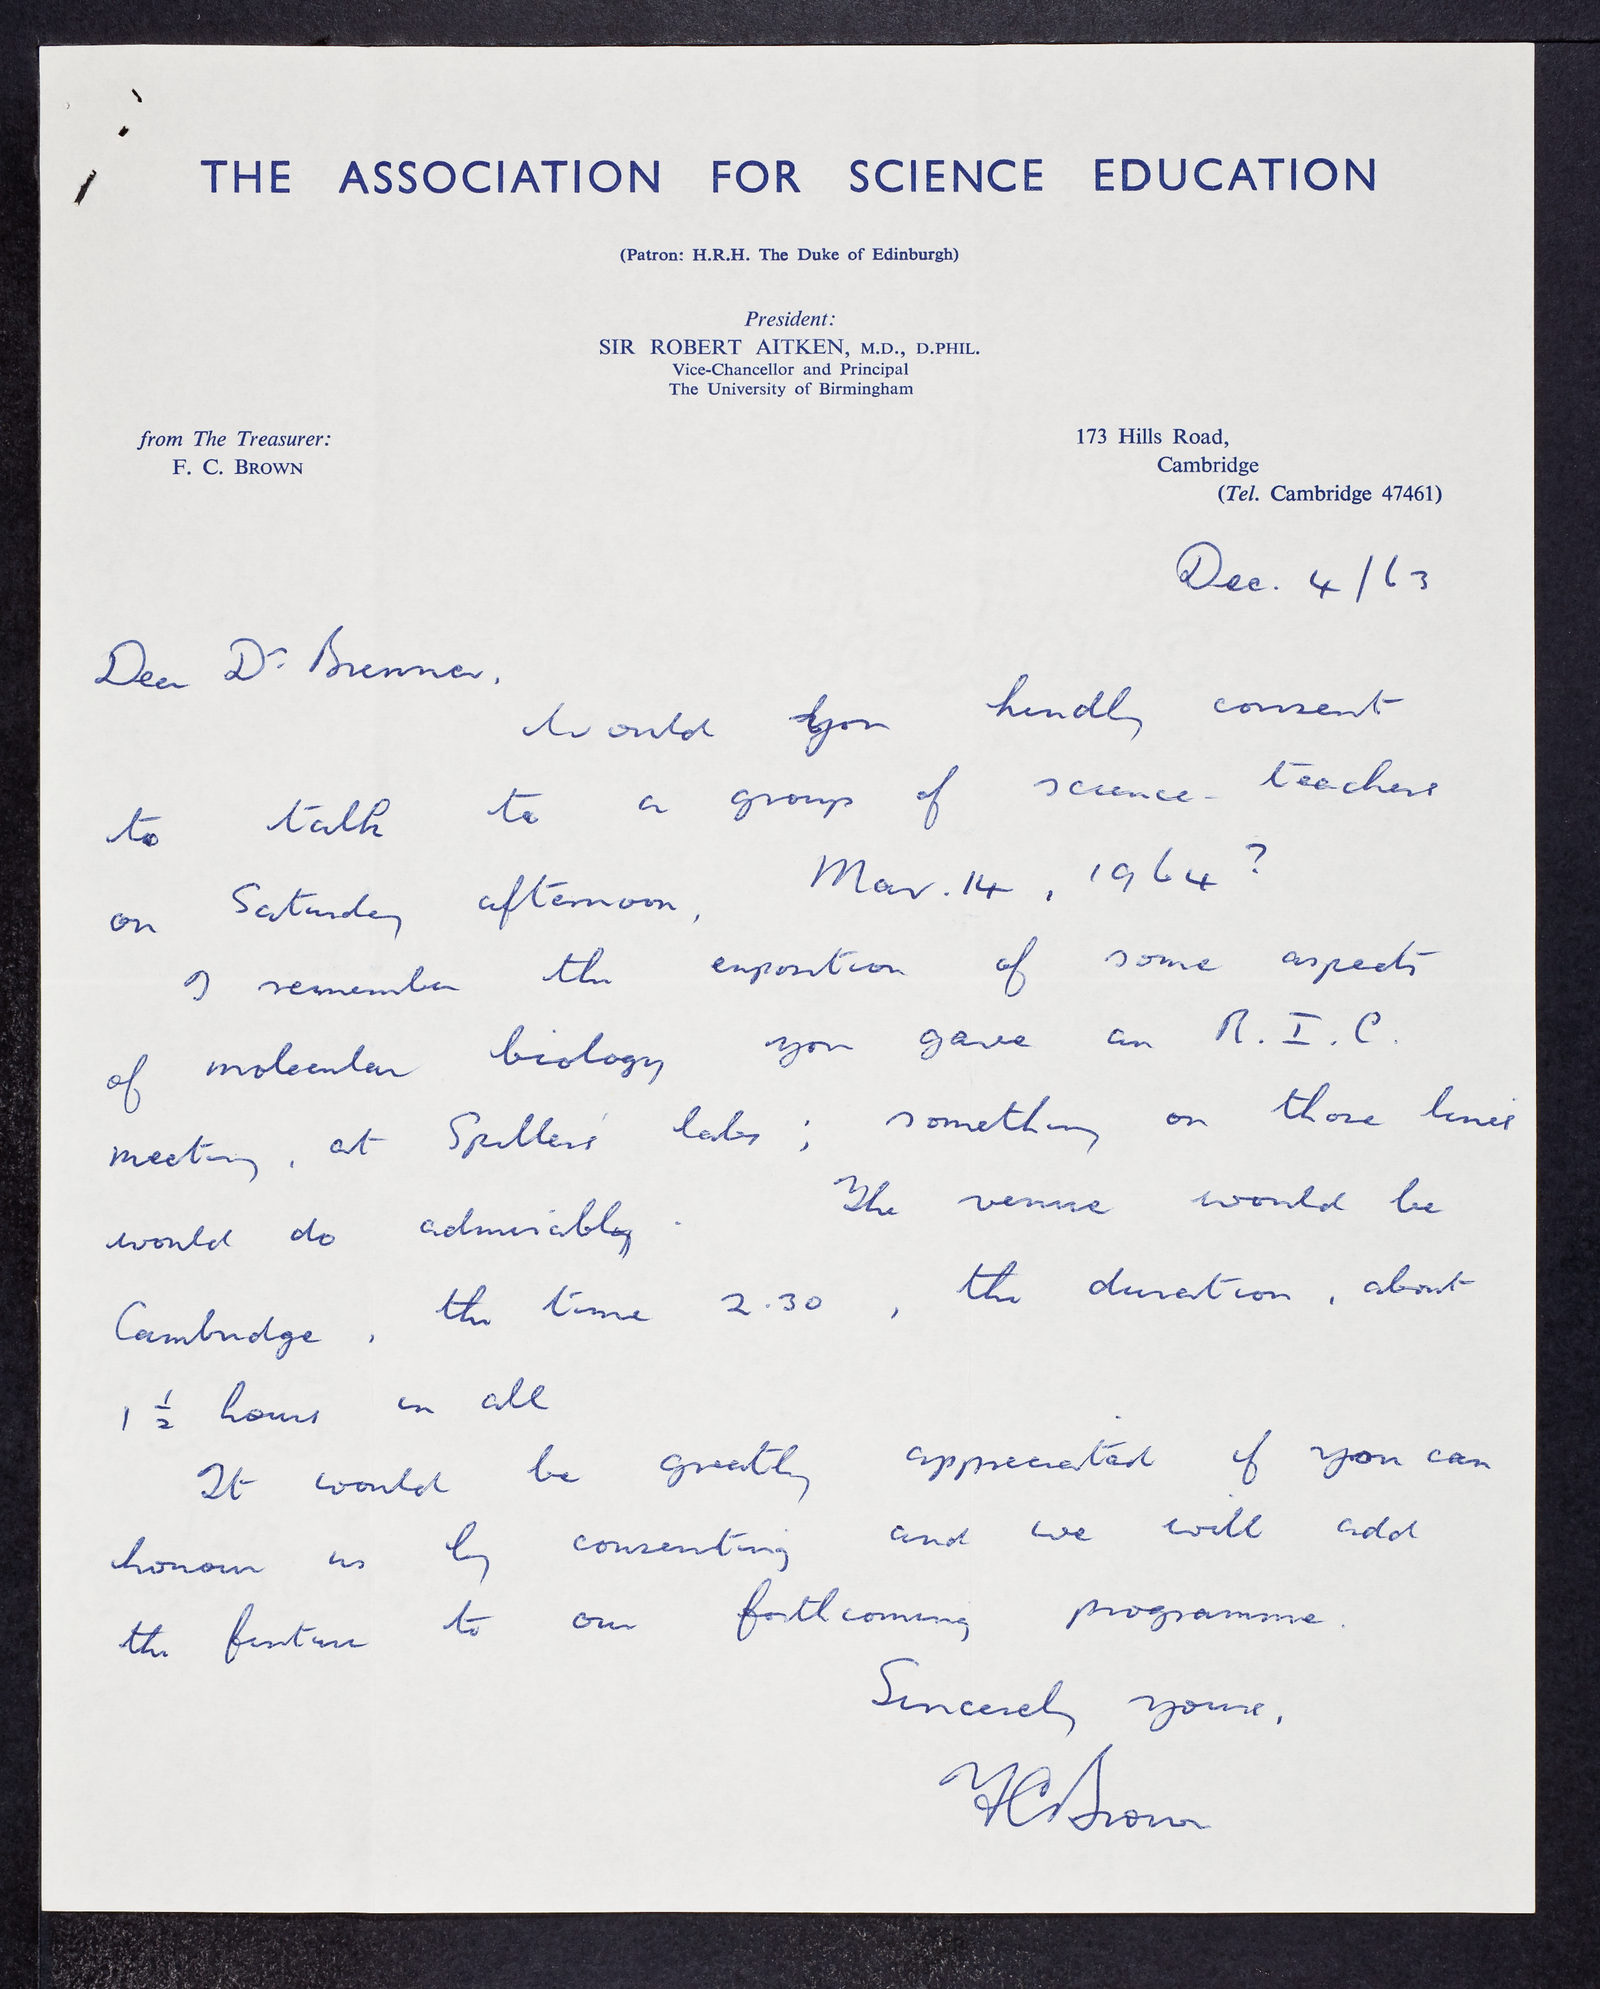 THE ASSOCIATION FOR SCIENCE EDUCATION
(Patron: H.R.H. The Duke of Edinburgh)
President:
SIR ROBERT AITKEN, M.D., D.PHIL.
Vice-Chancellor and Principal
The University of Birmingham
from The Treasurer:
F. C. BROWN
173 Hills Road,
Cambridge
(Tel. Cambridge 47461)
Dec. 4/63
Dear Dr Brenner,
Would you kindly consent
to talk to a group of science-teachers
on Saturday afternoon, Mar. 14, 1964?
I remember the exposition of some aspects
of molecular biology you gave an R.I.C.
meeting, at Spillers' labs; something on those lines
would do admirably. The venue would be
Cambridge, the time 2.30, the duration, about
1½ hours in all
It would be greatly appreciated if you can
honour us by consenting and we will add
the fixture to our forthcoming programme.
Sincerely yours,
FCBrown